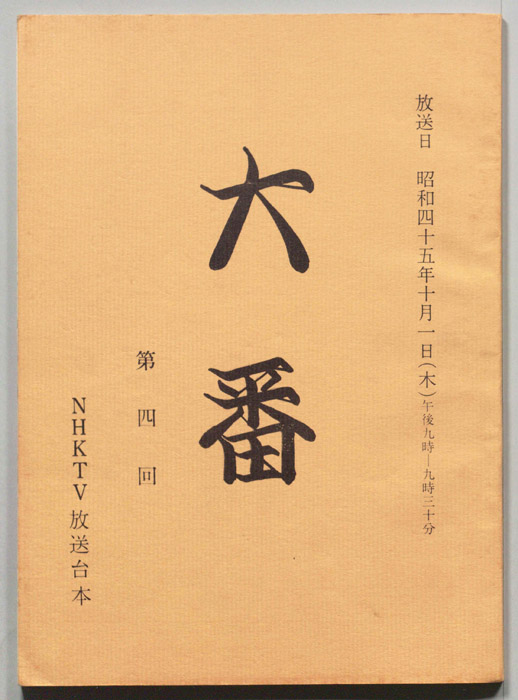 放送日 昭和四十五年十月一日(木)午後九時―九時三十分
大番
第四回
NHKTV放送台本